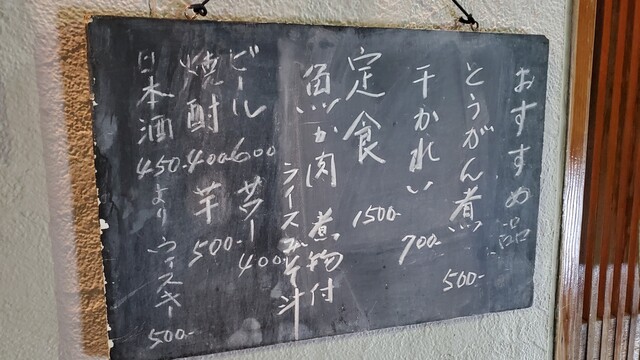 おすすめ品
とうがん煮 500-
干かれい 700-
定食 1500-
魚か肉 煮物付
ライス みそ汁
ビール 600 サワー 400-
焼酎 400 芋 500-
日本酒 450 より ウィスキー 500-